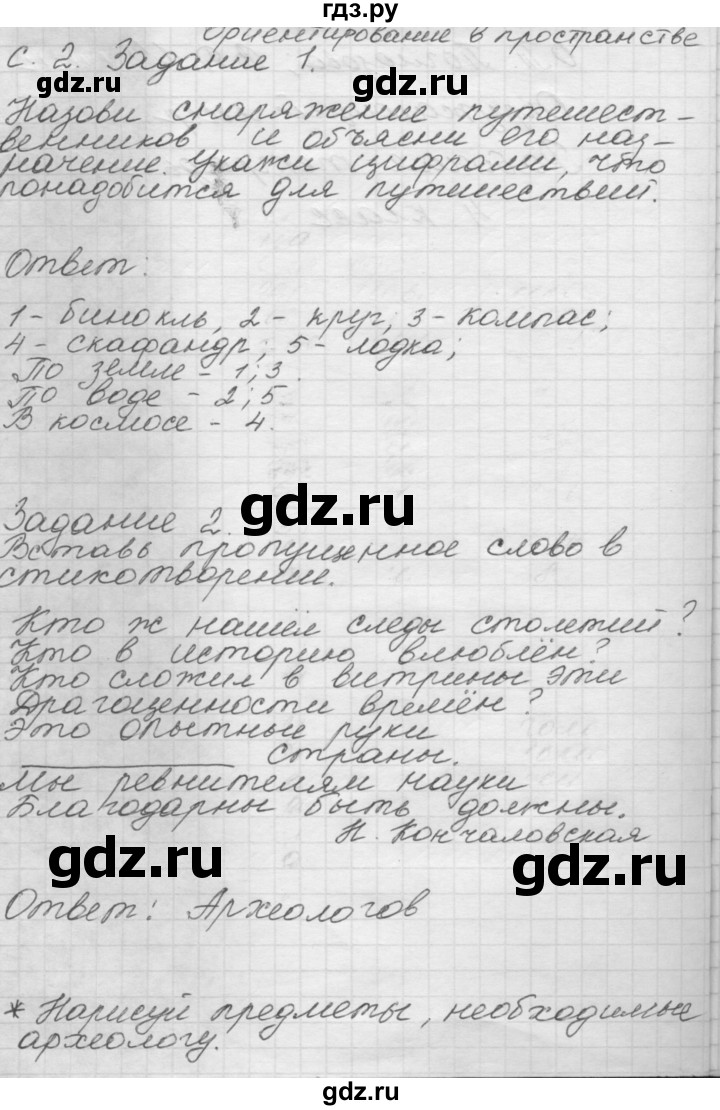 гдз.ру
Ориентирование в пространстве
с. 2. Задание 1.
gdz.ru
gdz.ru
Назови снаряжение путешест-
венников и объясни его наз-
начение. Укажи цифрами, что
понадобится для путешествий.
Ответ:
1 - бинокль, 2 - круг, 3 - компас;
4 - скафандр; 5 - лодка;
По земле - 1; 3.
По воде - 2; 5.
В космосе - 4.
gdz.ru
Задание 2.
Вставь пропущенное слово в
стихотворении.
Кто ж нашёл следы столетий?
Кто в историю влюблён?
Кто сложил в витрины эти
Драгоценности времён?
Это опытные руки
__________ страны.
Мы ревнителям науки
Благодарны быть должны.
Н. Кончаловская
gdz.ru
gdz.ru
Ответ: Археологов
* Нарисуй предметы, необходимые
археологу.
gdz.ru
gdz.ru
gdz.ru